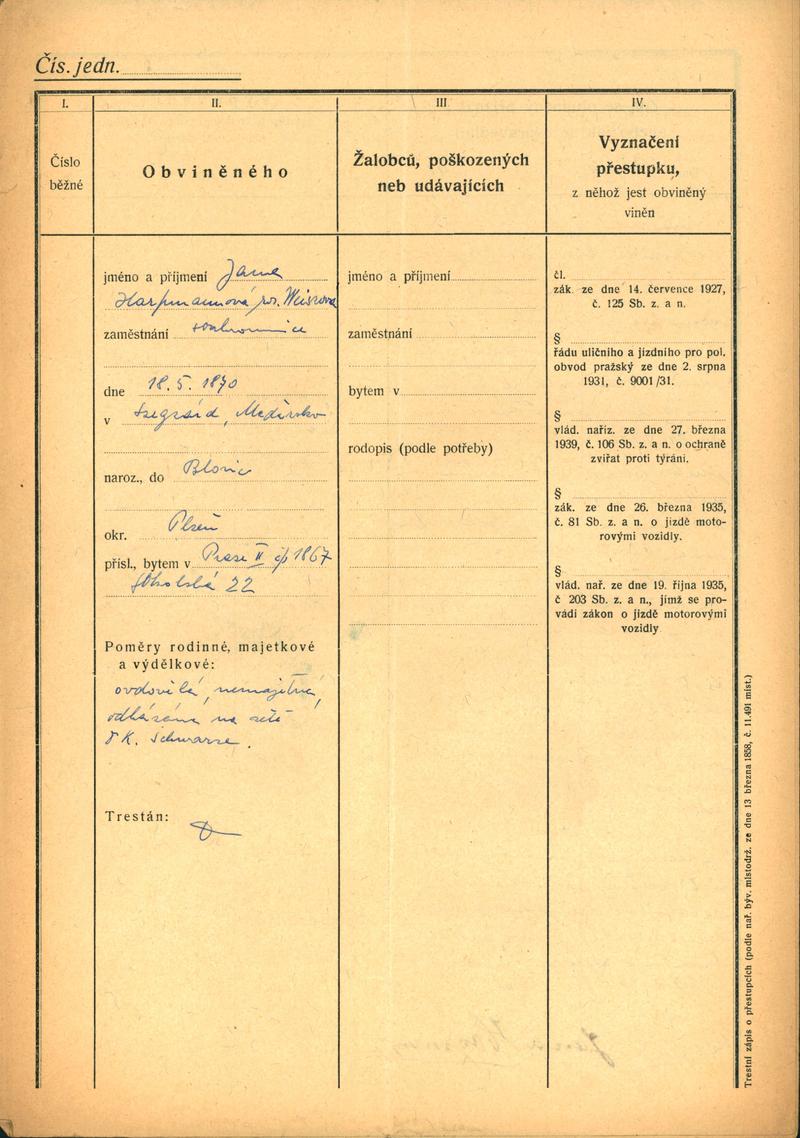 Čís. jedn.
I.
II.
III
IV.
Číslo
běžné
Obviněného
Žalobců, poškozených
neb udávajících
Vyznačení
přestupku,
z něhož jest obviněný
viněn
jméno a příjmení Jana
Harpmannová roz. Weissová
zaměstnání soukromnice
dne 18. 5. 1870
v Szegzárd, Maďarsko
naroz., do Blovic
okr. Plzeň
přísl., bytem v Praze II čp 1867
Sokolská 22
Poměry rodinné, majetkové
a výdělkové:
ovdovělá, nemajetná,
odkázána na zetě
K. Schwarze.
Trestán:
jméno a příjmení
zaměstnání
bytem v
rodopis (podle potřeby)
čl.
zák. ze dne 14. července 1927,
č. 125 Sb. z. a n.
§
řádu uličního a jízdního pro pol.
obvod pražský ze dne 2. srpna
1931, č. 9001/31.
§
vlád. naříz. ze dne 27. března
1939, č. 106 Sb. z. a n. o ochraně
zvířat proti týrání.
§
zák. ze dne 26. března 1935,
č. 81 Sb. z. a n. o jízdě moto-
rovými vozidly.
§
vlád. nař. ze dne 19. října 1935,
č 203 Sb. z. a n., jímž se pro-
vádí zákon o jízdě motorovými
vozidly
Trestní zápis o přestupcích (podle nař. býv. místodrž. ze dne 13 března 1858, č. 11.491 míst.)